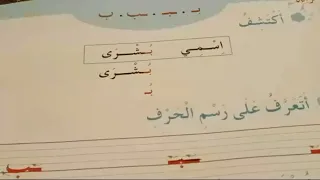 بـ ـبـ ـبـ ـب. ب
أَكْتَشِفُ
اِسْمِي بُشْرَى
بُشْرَى
بُـ
أَتَعَرَّفُ عَلَى رَسْمِ الْحَرْفِ